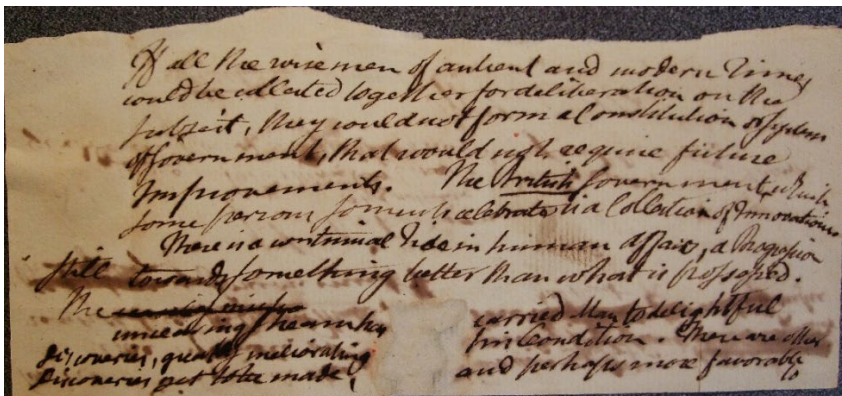 If all the wise men of antient and modern Times
could be collected together for deliberation on the
Subject, they could not form a Constitution or System
of Government, that would not require future
Improvements. The British Government, which
some persons so much celebrate is a Collection of Innovations
There is a continual Tide in human affairs, a Progression
still towards something better than what is possessed.
The
unceasing carried Man to delightful
Discoveries, greatly meliorating his Condition. There are other
Discoveries yet to be made, and perhaps more favorable
to